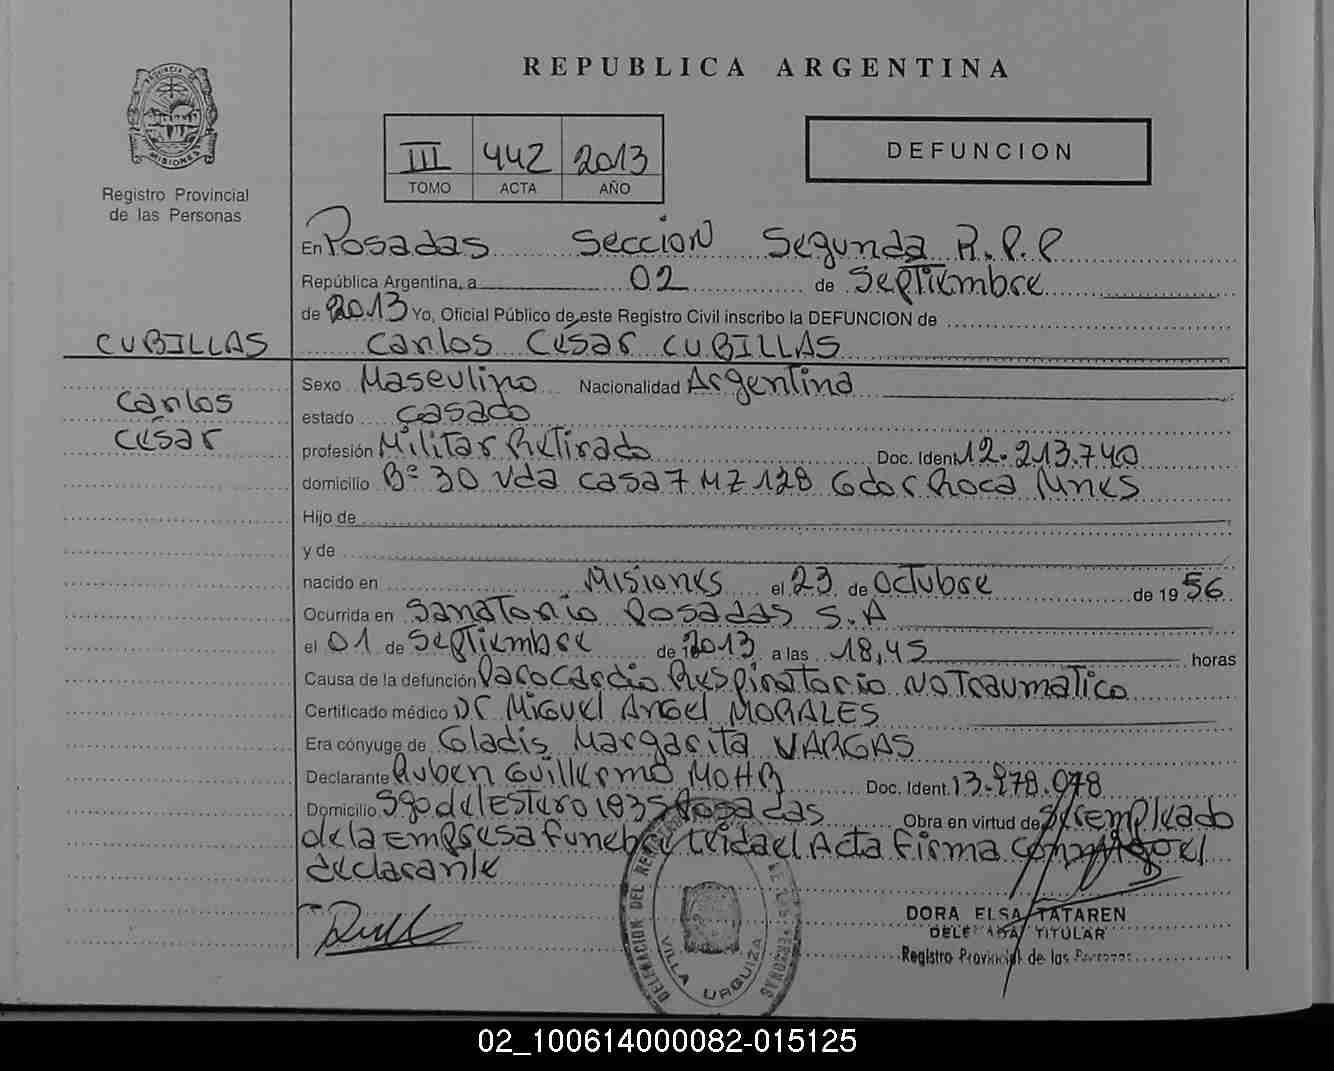 REPUBLICA ARGENTINA
PROVINCIA DE MISIONES
III 442 2013
TOMO ACTA AÑO
DEFUNCION
Registro Provincial
de las Personas
En Posadas Seccion Segunda R.P.P
República Argentina, a 02 de Septiembre
de 2013 Yo, Oficial Público de este Registro Civil inscribo la DEFUNCION de
CUBILLAS
Carlos César CUBILLAS
Sexo Masculino Nacionalidad Argentina
Carlos
estado casado
César
profesión Militar Retirado Doc. Ident. 12.213.740
domicilio Bº 30 Vda casa 7 MZ 128 Gdor Roca Mnes
Hijo de
y de
nacido en Misiones el 23 de octubre de 19 56
Ocurrida en Sanatorio Posadas S.A
el 01 de Septiembre de 2013 a las 18,45 horas
Causa de la defunción Parocardio Respiratorio No Traumatico
Certificado médico Dr Miguel Angel MORALES
Era cónyuge de Gladis Margarita VARGAS
Declarante Ruben Guillermo MOHR Doc. Ident. 13.978.078
Domicilio Sgo del Estero 1835 Posadas Obra en virtud de ser empleado
de la Empresa funebre leida el Acta firma conmigo el
declarante
DORA ELSA TATAREN
DELEGADA TITULAR
Registro Provincial de las Personas
VILLA URQUIZA
02_100614000082-015125